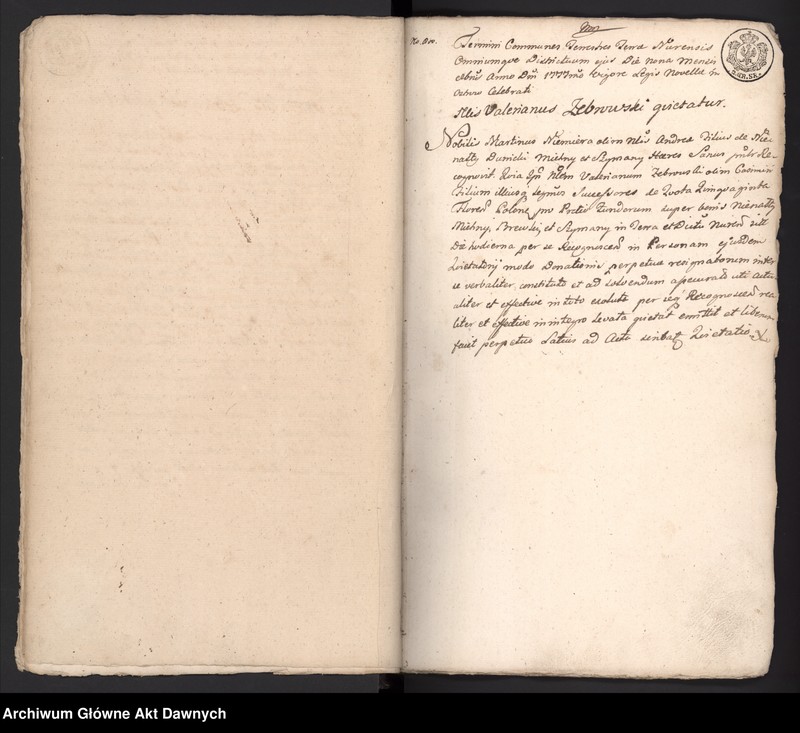 Termini Communes Terrestres Terræ Nurensis
Omniumque Districtuum ejus Die Nona Mensis
Anno Dni 1777mo Vigore Legis Novellæ in
Celebrati
Nlis Valerianus Zebrowski quietatur.
Nobilis Martinus Niemiera olim Nlis Andreæ Filius de Nie-
natty Danielki Michny et Szymany Hæres Sanus Re-
cognovit Quia Ipse Nlem Valerianum Zebrowski olim Casimiri
Filium illiusq Successores de Quota Quinquaginta
Floren Polone pro Pretio Fundorum super bonis Nienatty
Michny, Brewki, et Szymany in Terra et Nuren
Die hodierna per se Recognoscen in Personam ejusdem
Quietatorij modo Donationis perpetuæ resignationum inter
se verbaliter constituto et ad solvendum apecurato uti actu-
aliter et effective in toto exoluta per seq Recognoscen rea
liter et effective in integro levata quietat emittit et liberum
facit perpetuo Latius ad Acta Quietatio
Archiwum Główne Akt Dawnych